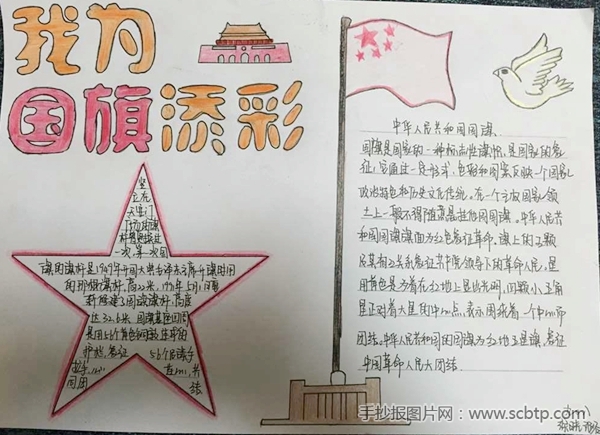 我为
国旗添彩
坚
立在
天安门
广场
一次,第一次国
旗的旗杆是1949年中国大典毛泽东主席升旗时用
的那根旗杆,高22米,1991年2月,旧旗
杆
达32.6米,国旗基座四周
是用56个
护栏,象征 56个民族手
结
同团
中华人民共和国国旗、
国旗是国家的一种标志性旗帜,是国家的象
征;它通过一定形式、色彩和图案反映一个国家
政治特色和历史文化传统。在一个主权国家领
土上一般不得随意悬挂他国国旗。中华人民共
和国国旗旗面为红色象征革命,旗上的五颗
星其相互关系象征共产党领导下的革命人民,星
用黄色是为着在红地上显出光明,四颗小五角
星正对着大星的中心点,表示围绕着一个中心而
团结。中华人民共和国的国旗为红地五星旗,象征
中国革命人民大团结.
手抄报图片网:www.scbtp.com